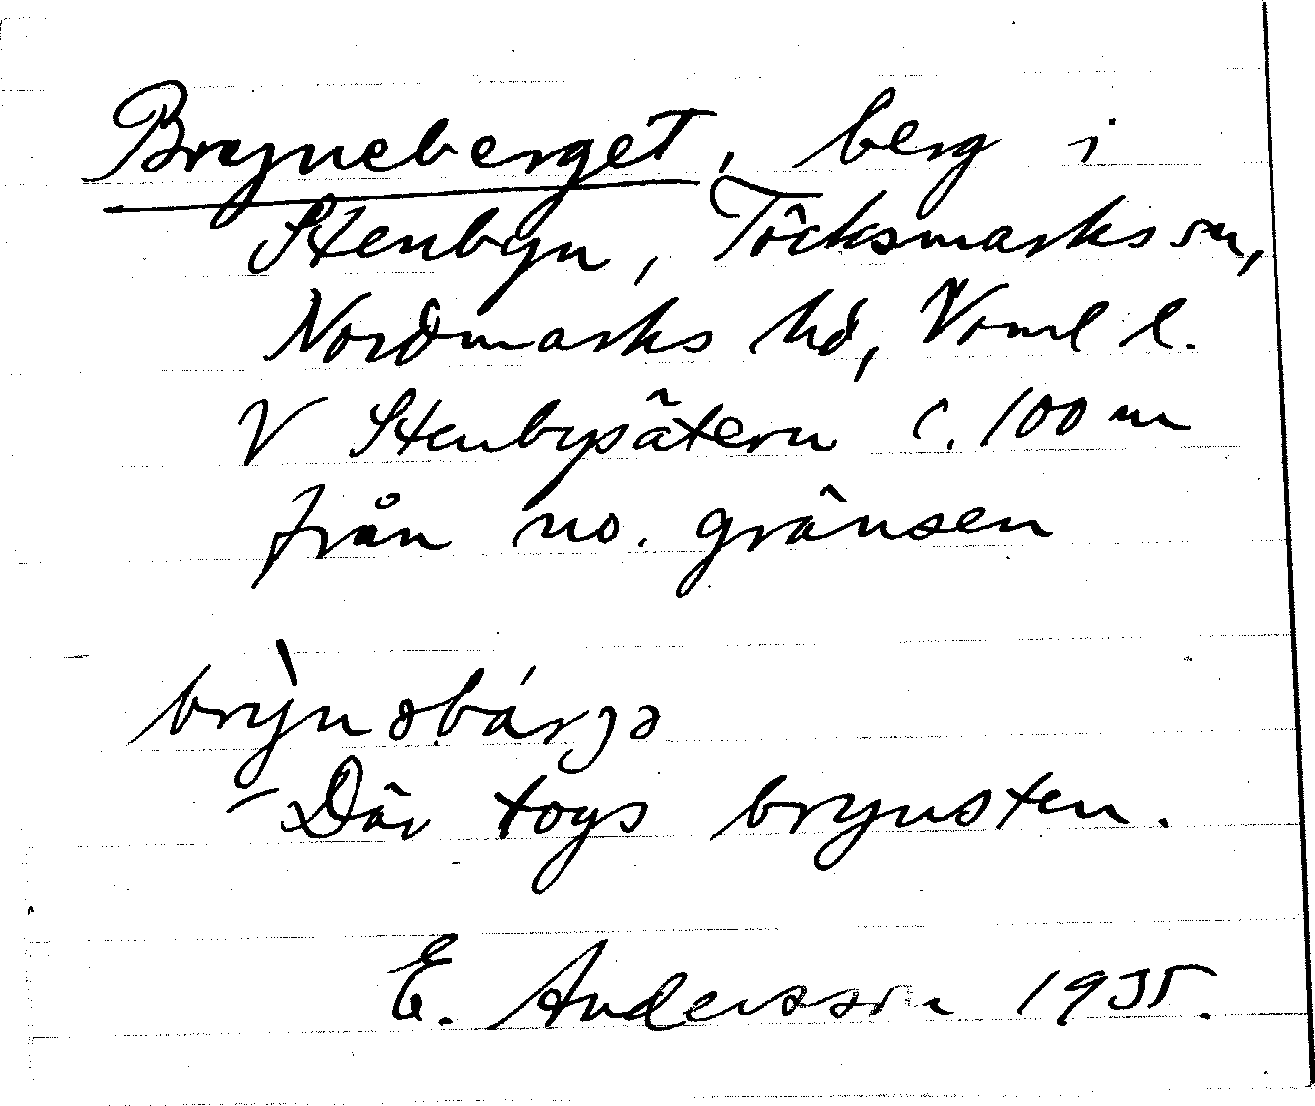 Bryneberget, berg i
Stenbyn, Töcksmarks sn,
Nordmarks hd, Vrml l.
V Stenbysätern c. 100 m
från no. gränsen
brỳnəbárjə
- Där togs brynsten.
E. Andersson 1935.